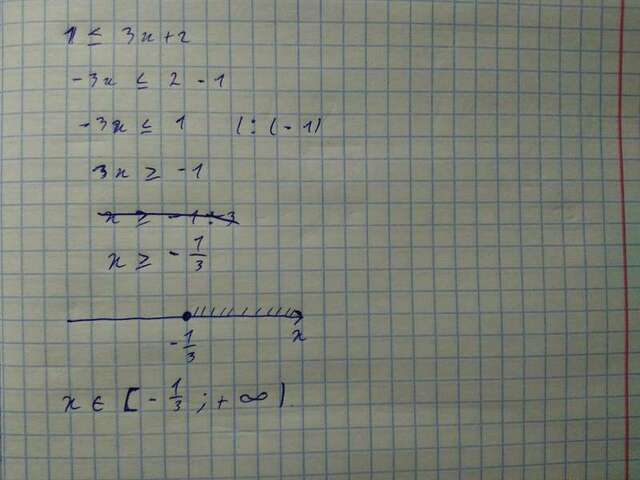 1 ≤ 3x + 2
-3x ≤ 2 - 1
-3x ≤ 1 (: (-1)
3x ≥ -1
x ≥ -1 : 3
x ≥ -1/3
-1/3 x
x ∈ [-1/3; +∞).